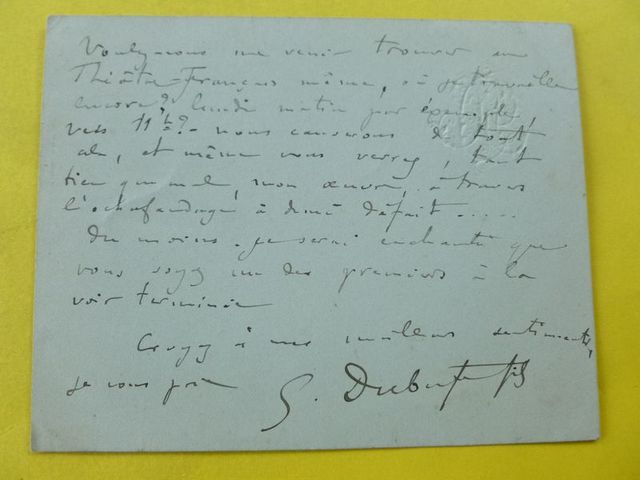 Voulez-vous me venir trouver au
Théâtre-Français même, où je travaille
encore? lundi matin par exemple,
vers 11 h? - nous causerons de tout
cela, et même vous verrez, tant
bien que mal, mon œuvre, à travers
l'échafaudage à demi défait.....
du moins. je serai enchanté que
vous soyez un des premiers à la
voir terminée
Croyez à mes meilleurs sentiments,
je vous prie
G. Dubufe fils